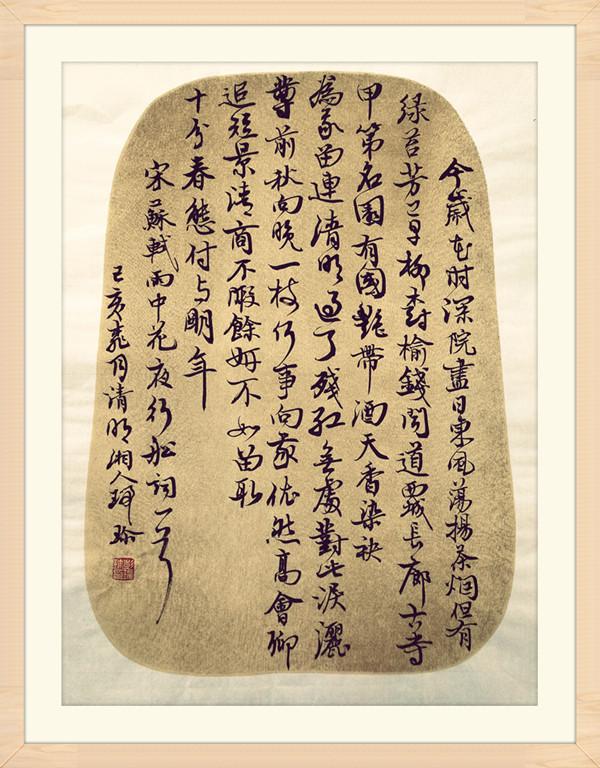 今歲花时深院盡日東風蕩揚茶烟但有
绿苔芳草柳樹榆錢闻道西城長廊古寺
甲第名園有國艷帶酒天香染袂
為我留連清明過了殘紅無處對此淚灑
尊前秋向晚一枝何事向我依然高會聊
追短景清商不暇餘妍不如留取
十分春態付与明年
宋蘇軾雨中花夜行船詞一首
己亥月清明湘人